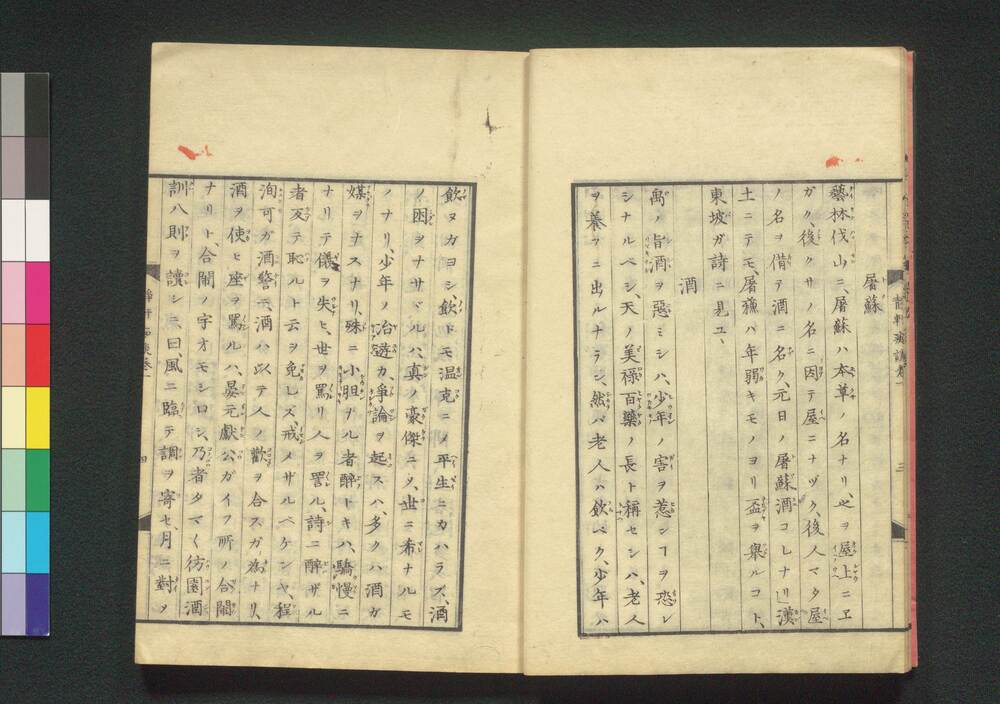 屠蘇
藝林伐山ニ、屠蘇ハ本草ノ名ナリ、之ヲ屋上ニヱ
ガク、後クサノ名ニ因テ屋ニナヅク、後人マタ屋
ノ名ヲ借テ酒ニ名ク、元日ノ屠蘇酒コレナリ、漢
土ニテモ、屠蘇ハ年弱キモノヨリ盃ヲ舉ルコト、
東坡ガ詩ニ見ユ、
酒
禹ノ旨酒ヲ惡ミシハ、少年ノ害ヲ惹ンヿヲ恐レ
シナルベシ、天ノ美禄百藥ノ長ト稱セシハ、老人
ヲ養フニ出ルナラン、然バ老人ハ飲ベク、少年ハ
飲ヌガヨシ、飲トモ温克ニメ平生ニカハラズ、酒
ノ困ヲナサヾルハ、真ノ豪傑ニメ、世ニ希ナルモ
ノナリ、少年ノ冶遊カ、爭論ヲ起スハ、多クハ酒ガ
媒ヲナスナリ、殊ニ小胆ナル者醉トキハ、驕慢ニ
ナリテ儀ヲ失ヒ、世ヲ罵リ人ヲ詈ル、詩ニ醉ザル
者反テ恥ルト云ヲ免レズ、戒メザルベケンヤ、程
洵可ガ酒警ニ、酒ハ以テ人ノ歡ヲ合スガ為ナリ、
酒ヲ使ヒ座ヲ罵ルハ、晏元獻公ガイフ所ノ合鬧
ナリト、合鬧ノ字オモシロシ、乃者タマ〱仿園酒
訓八則ヲ讀シニ、曰、風ニ臨テ調ヲ寄セ、月ニ對メ
三
四